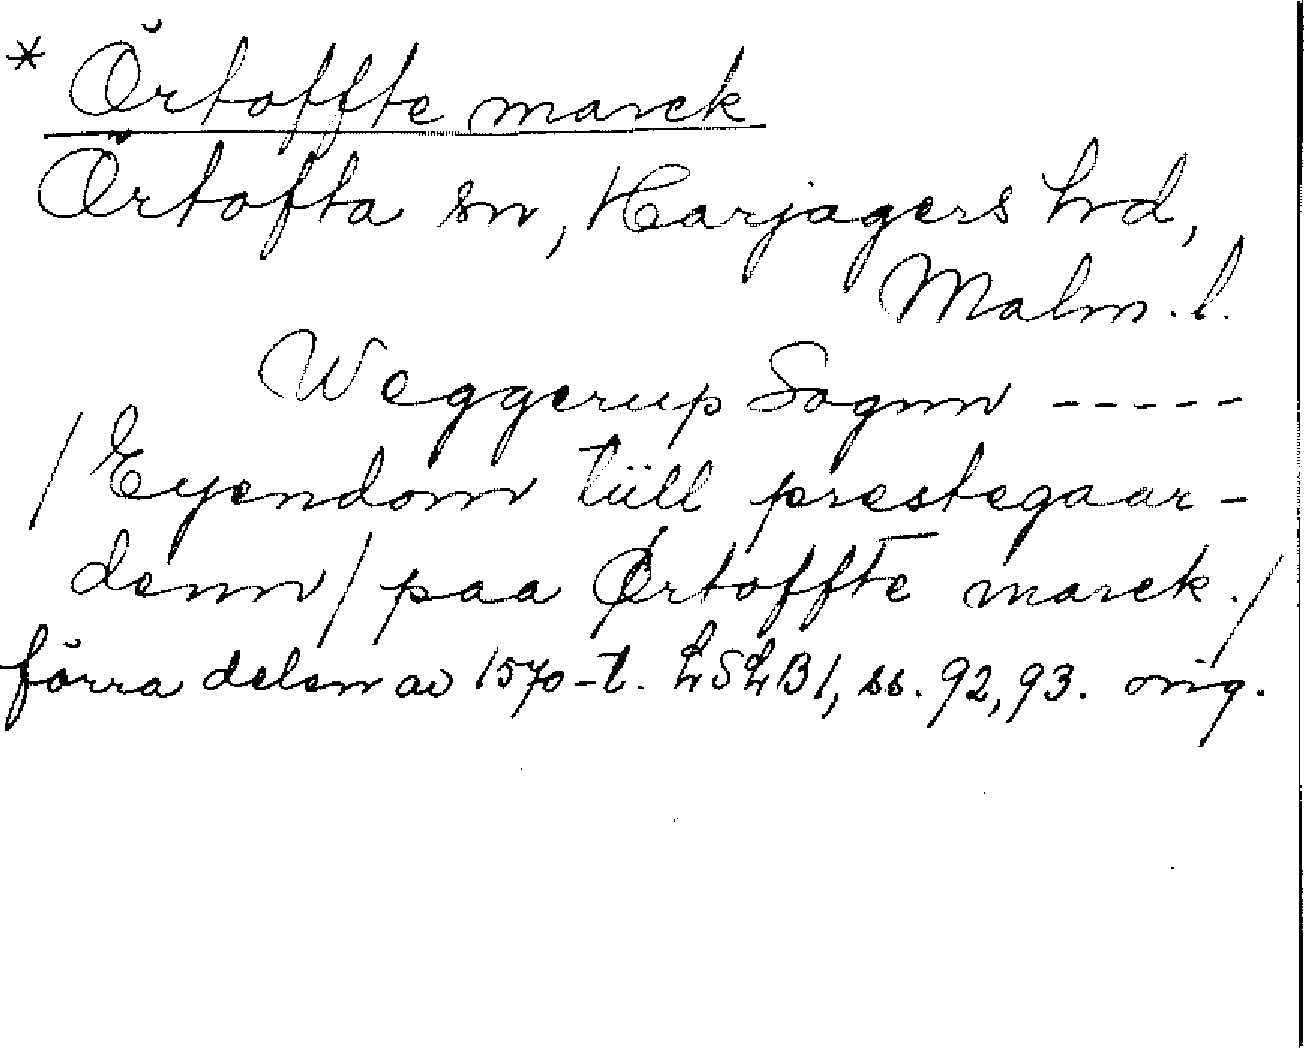 * Örtoffte marck
Örtofta sn, Harjagers hrd,
Malm. l.
Weggerup Sognn -----
/Eyendom tiill prestegaar-
denn/ paa Ørtoffte marck./
förra delen av 1570-t. LSLB1, ss. 92, 93. orig.